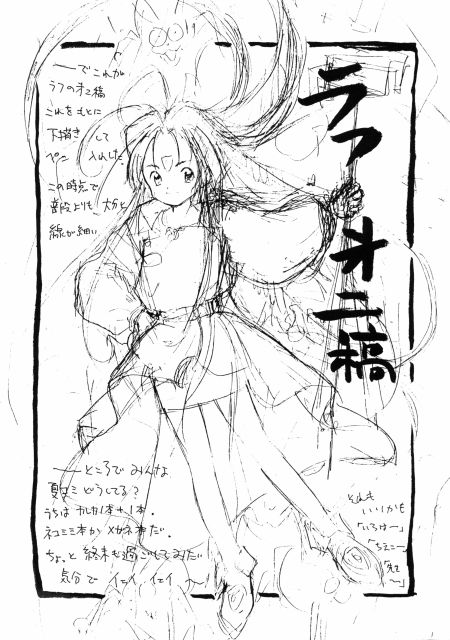 ラフ
オニ稿
――でこれが
ラフのオニ稿
これをもとに
下描きして
ペン入れした。
この時点で
普段よりも大分と
線が細い
――ところでみんな
夏コミどうしてる?
うちは カレカノ本+1本。
ネコミミ本かメガネ本だ。
ちょっと終末を過ごしてみたい
気分で イエイ イエイ
それも
いいかも